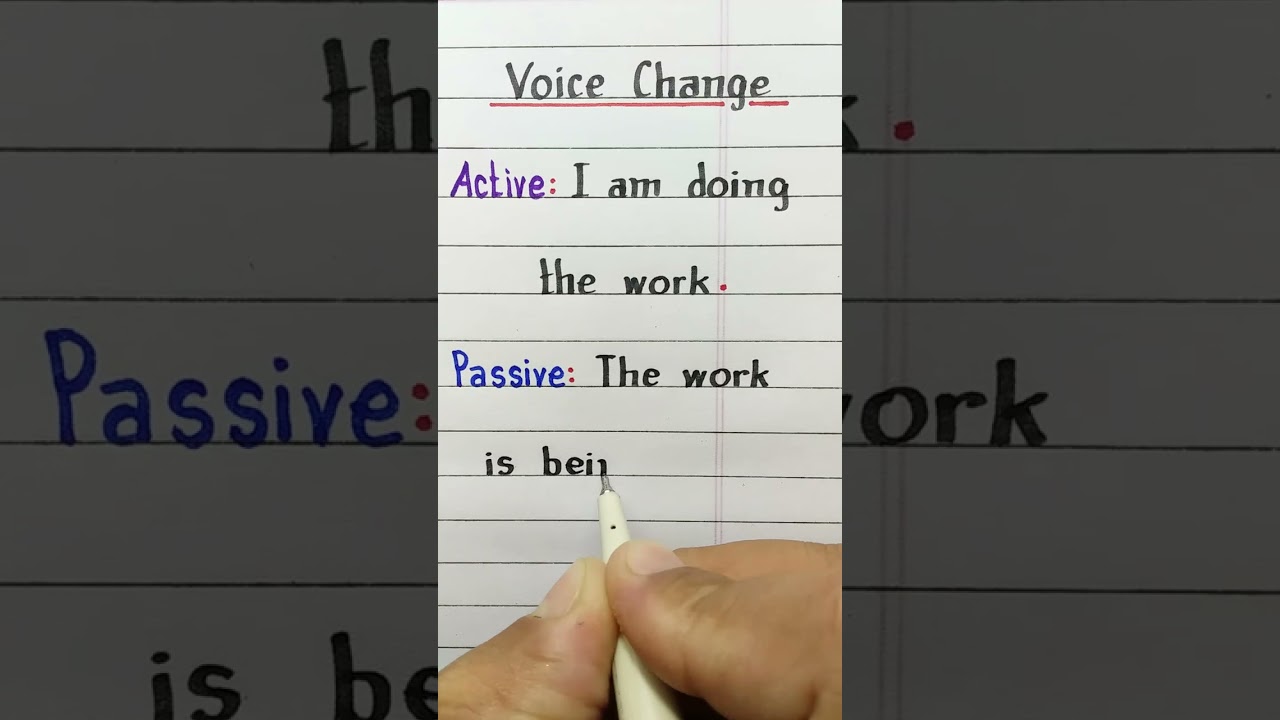 Voice Change
Active: I am doing
the work.
Passive: The work
is bein